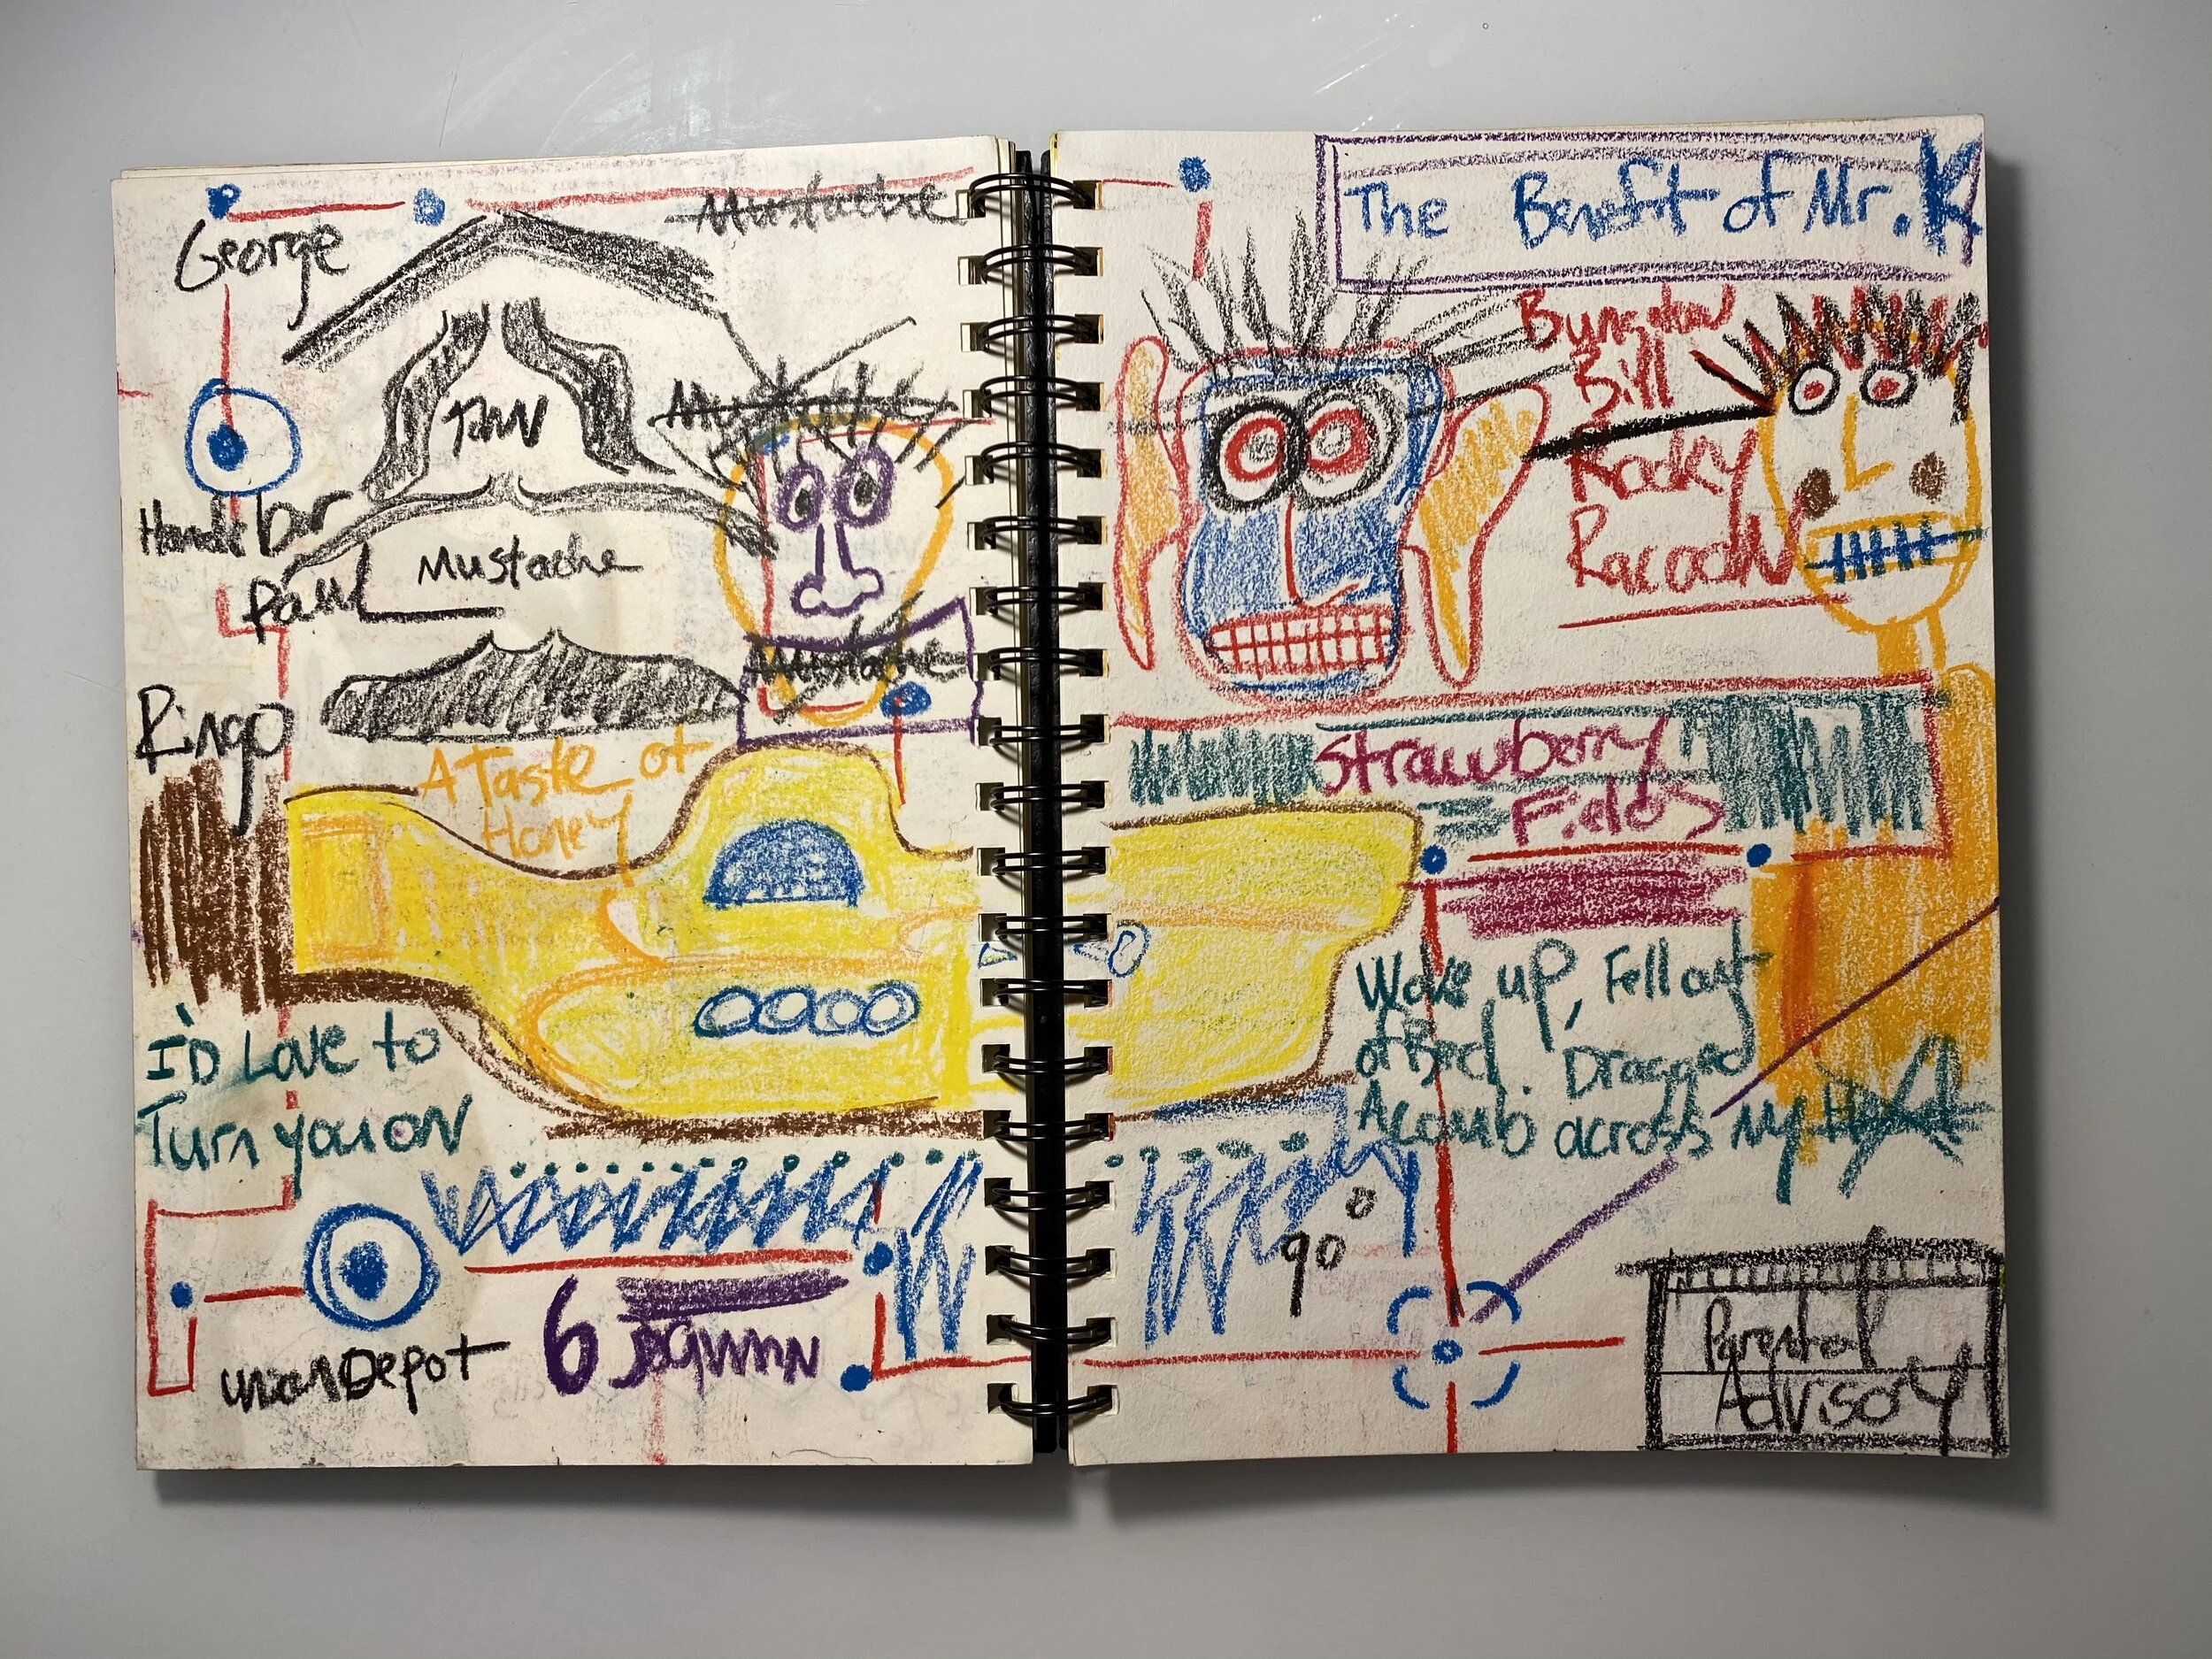 Mustache
George
John
Mustache
Handlebar
Paul
Mustache
Mustache
Ringo
A Taste of
Honey
I'D Love to
Turn you on
union Depot
6
The Benefit of Mr. K
Bungalow
Bill
Rocky
Racoon
Strawberry
Fields
Woke up, Fell out
of Bed. Dragged
A comb across my
90
Parental
Advisory